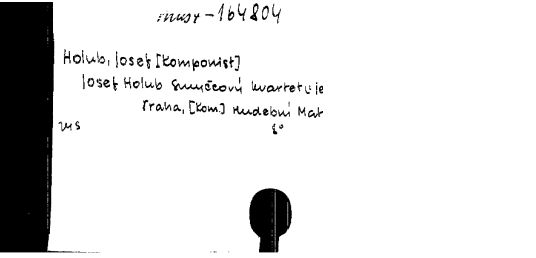 must-164804
Holub, Josef [Komponist]
Josef Holub Smyčcový kvartet v je
Praha, [Kom.] Hudební Mat
8°